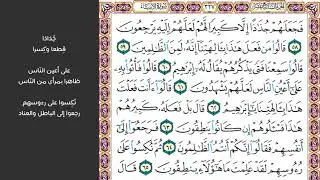 ٣٢٧
فَجَعَلَهُمْ جُذَٰذًا إِلَّا كَبِيرًا لَّهُمْ لَعَلَّهُمْ إِلَيْهِ يَرْجِعُونَ
٥٨ قَالُوا۟ مَن فَعَلَ هَٰذَا بِـَٔالِهَتِنَآ إِنَّهُۥ لَمِنَ ٱلظَّٰلِمِينَ
٥٩ قَالُوا۟ سَمِعْنَا فَتًى يَذْكُرُهُمْ يُقَالُ لَهُۥٓ إِبْرَٰهِيمُ ٦٠ قَالُوا۟ فَأْتُوا۟ بِهِۦ
عَلَىٰٓ أَعْيُنِ ٱلنَّاسِ لَعَلَّهُمْ يَشْهَدُونَ ٦١ قَالُوٓا۟ ءَأَنتَ فَعَلْتَ
هَٰذَا بِـَٔالِهَتِنَا يَٰٓإِبْرَٰهِيمُ ٦٢ قَالَ بَلْ فَعَلَهُۥ كَبِيرُهُمْ
هَٰذَا فَسْـَٔلُوهُمْ إِن كَانُوا۟ يَنطِقُونَ ٦٣ فَرَجَعُوٓا۟ إِلَىٰٓ
أَنفُسِهِمْ فَقَالُوٓا۟ إِنَّكُمْ أَنتُمُ ٱلظَّٰلِمُونَ ٦٤ ثُمَّ نُكِسُوا۟ عَلَىٰ
رُءُوسِهِمْ لَقَدْ عَلِمْتَ مَا هَٰٓؤُلَآءِ يَنطِقُونَ ٦٥
جُذَاذًا
قطعا وكسرا
على أعين الناس
ظاهرا بمرأى من الناس
نُكسوا على رءوسهم
رجعوا إلى الباطل والعناد